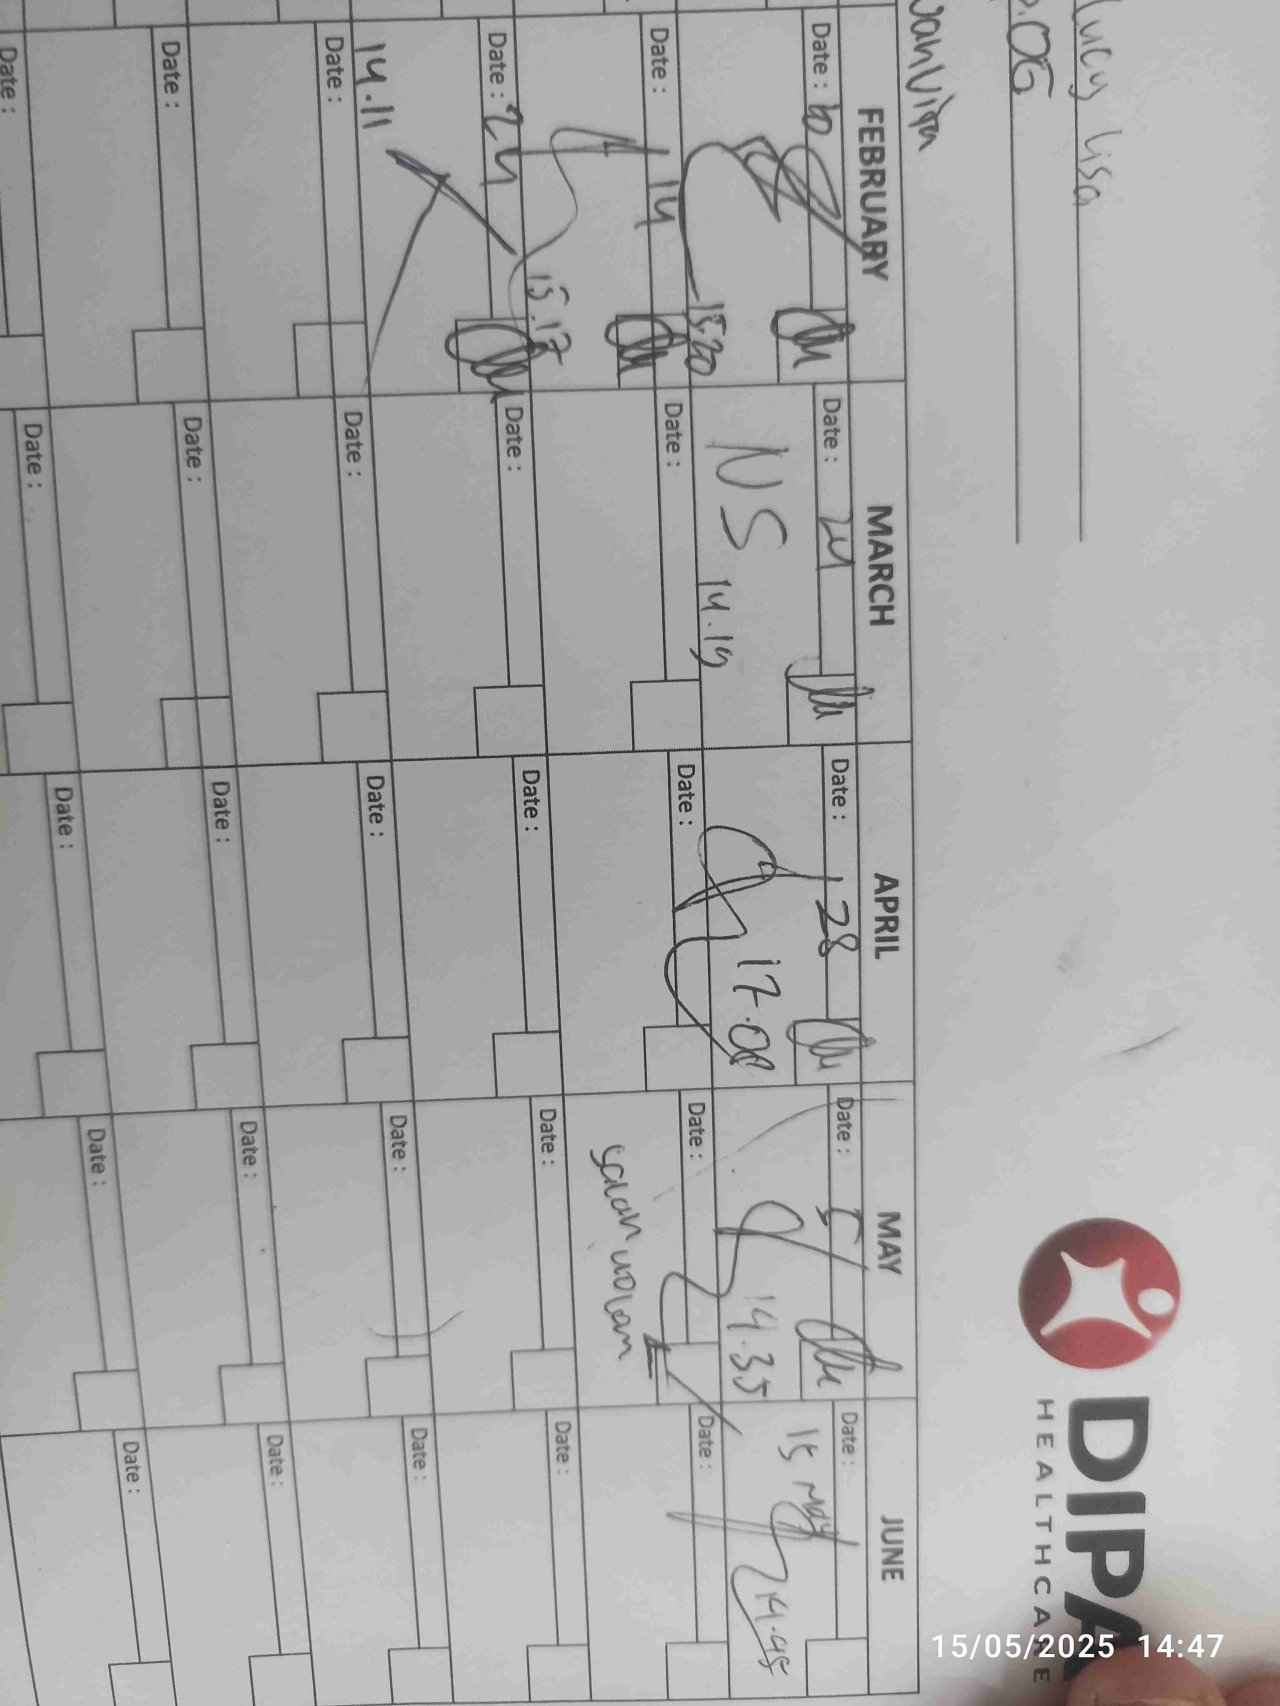 Lucy Lisa
.OG
DIPA
HEALTHCARE
FEBRUARY MARCH APRIL MAY JUNE
Date : 10 Date : 24 Date : 28 Date : 5 Date :
15.20 NS 14.19 17.08 14.35 15 May 14.45
Date : 14 Date : Date : Date : Date :
15.17 salah kolom
Date : 24 Date : Date : Date : Date :
14.11
Date : Date : Date : Date : Date :
Date : Date : Date : Date : Date :
Date : Date : Date : Date : Date :
15/05/2025 14:47